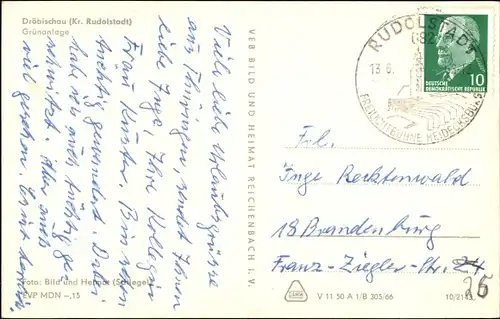 Dröbischau (Kr. Rudolstadt)
Grünanlage
Viele liebe Urlaubsgrüsse
aus Thüringen, sendet Ihnen
liebe Inge, Ihre Kollegin
Frau Künster. Bin schon
tüchtig gewandert. Dabei
habe ich auch tüchtig ge-
schwitzt. Aber auch
viel gesehen.
Foto: Bild und Heimat (Schlegel)
EVP MDN –,15
VEB BILD UND HEIMAT REICHENBACH I. V.
RUDOLSTADT
682
13.6.
FREILICHTBÜHNE HEIDECKSBURG
DEUTSCHE
DEMOKRATISCHE REPUBLIK
10
Frl.
Inge Recktenwald
18 Brandenburg
Franz-Ziegler-Str. 24
26
V 11 50 A 1/B 305/66
10/2143